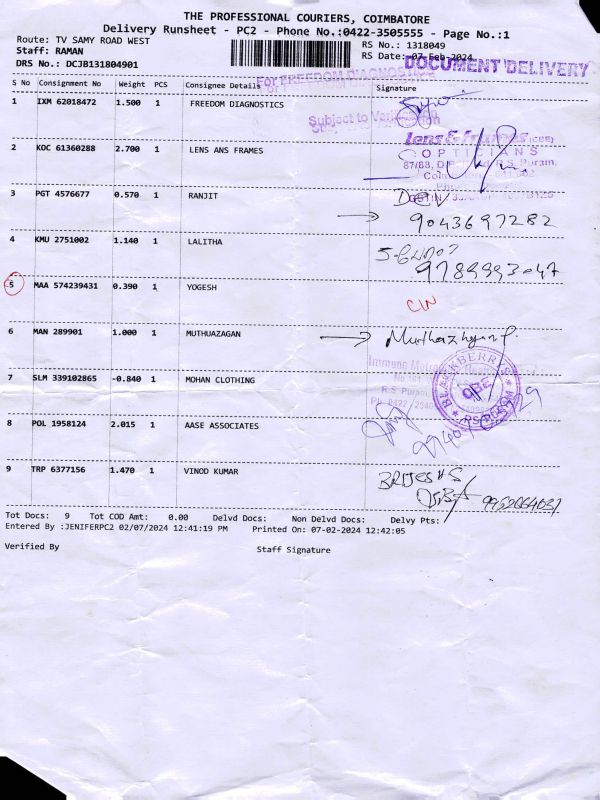 THE PROFESSIONAL COURIERS, COIMBATORE
Delivery Runsheet - PC2 - Phone No.:0422-3505555 - Page No.:1
Route: TV SAMY ROAD WEST
RS No.: 1318049
Staff: RAMAN
RS Date: 07-Feb-2024
DRS No.: DCJB131804901
DOCUMENT DELIVERY
S No Consignment No Weight PCS Consignee Details Signature
For FREEDOM DIAGNOSTICS
1 IXM 62018472 1.500 1 FREEDOM DIAGNOSTICS
Subject to
2 KOC 61360288 2.700 1 LENS ANS FRAMES
Lens & frames (CBE)
OPTITIANS
87/88, R.S. Puram,
3 PGT 4576677 0.570 1 RANJIT
9043697282
4 KMU 2751002 1.140 1 LALITHA
9789993047
5 MAA 574239431 0.390 1 YOGESH
CW
6 MAN 289901 1.000 1 MUTHUAZAGAN
7 SLM 339102865 -0.840 1 MOHAN CLOTHING
BLACKBERRY
CBE
8 POL 1958124 2.015 1 AASE ASSOCIATES
9 TRP 6377156 1.470 1 VINOD KUMAR
BRIJESH S
Tot Docs: 9 Tot COD Amt: 0.00 Delvd Docs: Non Delvd Docs: Delvy Pts:
Entered By :JENIFERPC2 02/07/2024 12:41:19 PM Printed On: 07-02-2024 12:42:05
Verified By Staff Signature